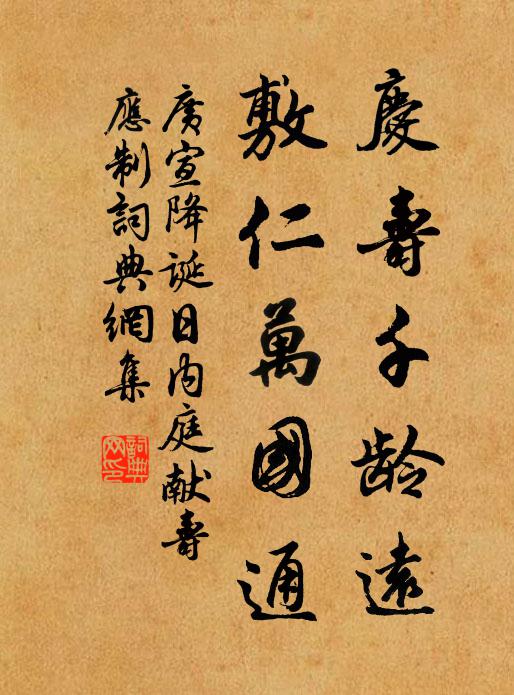 慶壽千龄遠
敷仁萬國通
廣宣降誕日内庭献壽
應制詞典網集
詞典网印